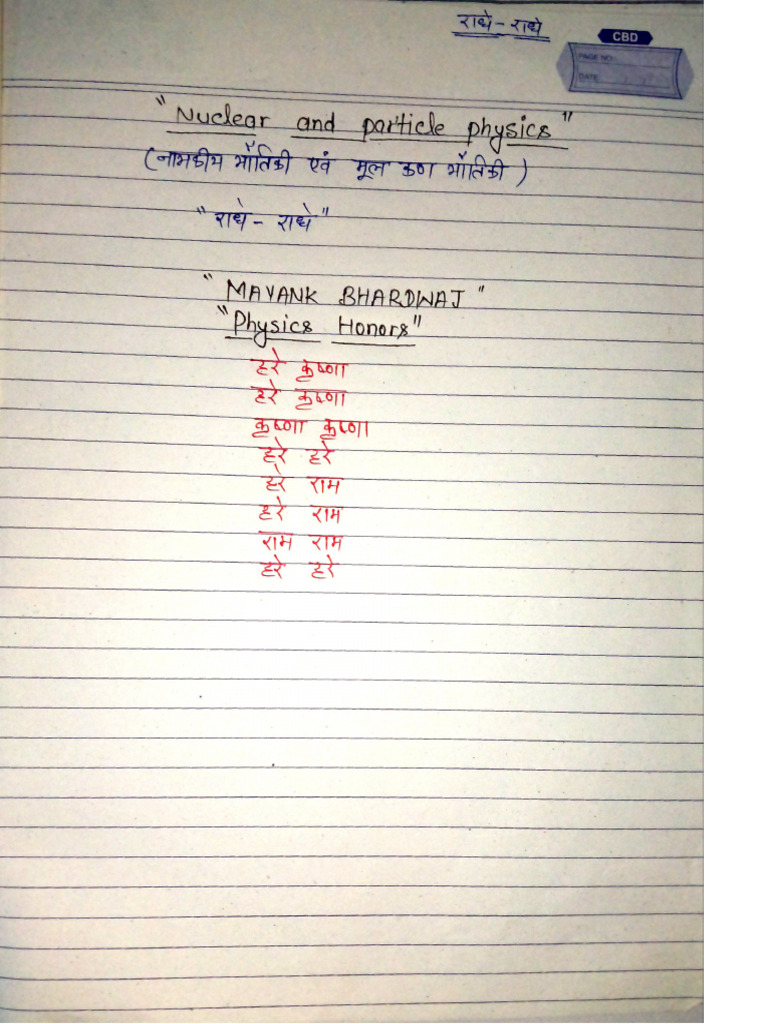 राधे - राधे
CBD
PAGE NO.
DATE
"Nuclear and particle physics"
(नाभकीय भौतिकी एवं मूल कण भौतिकी)
"राधे - राधे"
"MAYANK BHARDWAJ"
"Physics Honors"
हरे कृष्णा
हरे कृष्णा
कृष्णा कृष्णा
हरे हरे
हरे राम
हरे राम
राम राम
हरे हरे